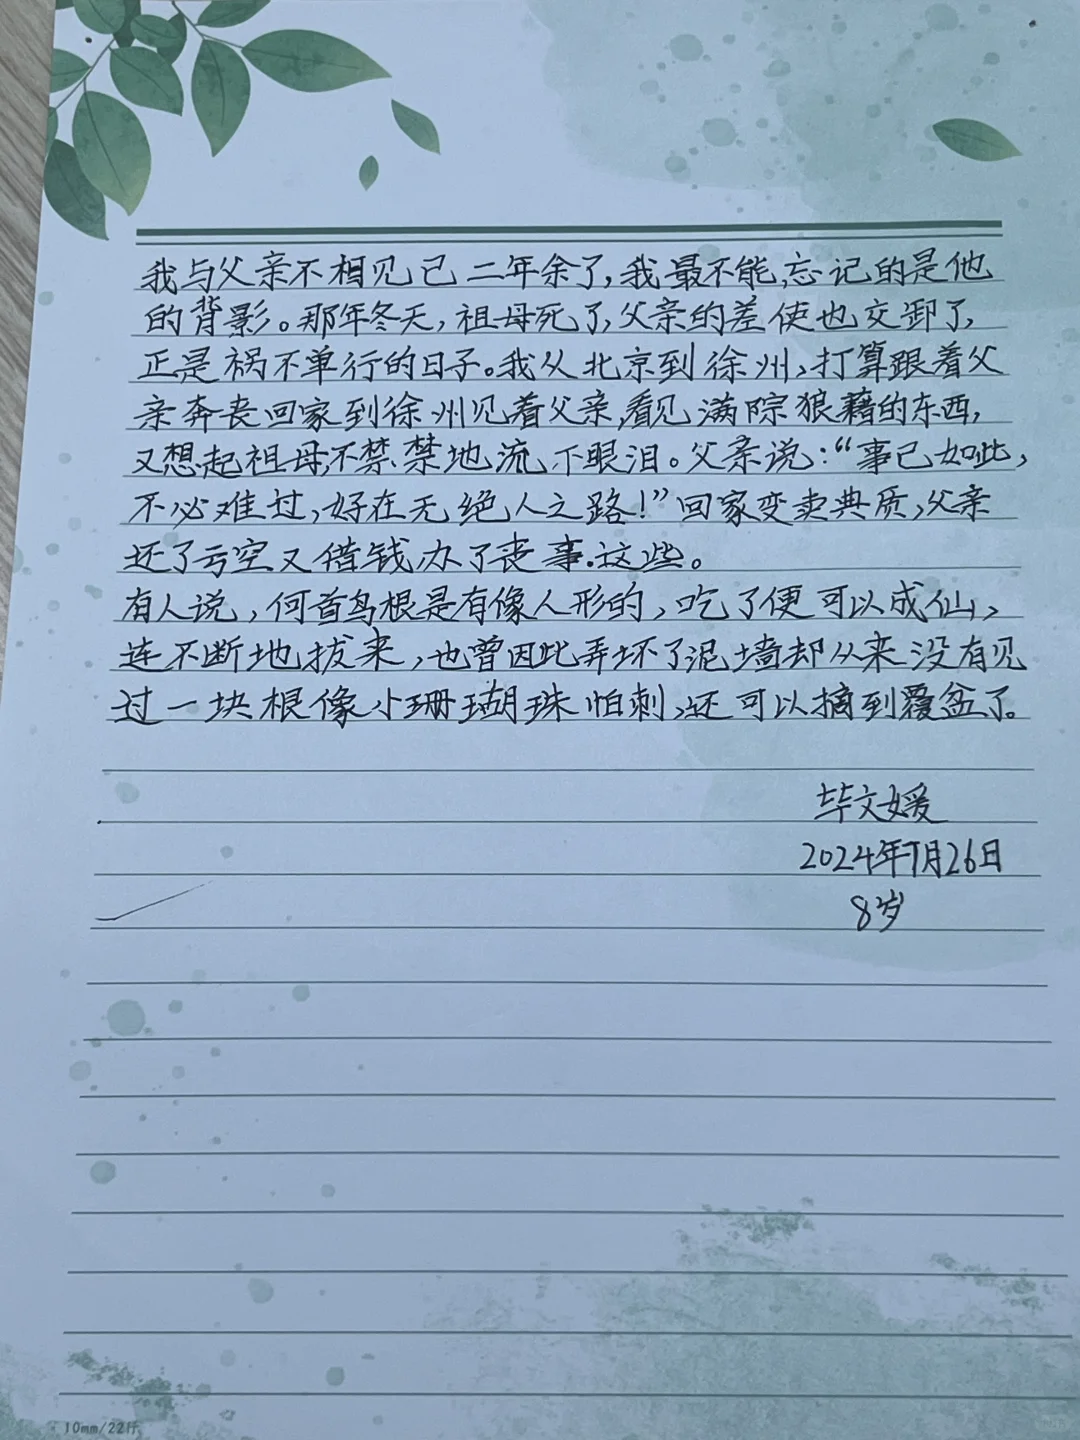 我与父亲不相见已二年余了,我最不能忘记的是他
的背影。那年冬天,祖母死了,父亲的差使也交卸了,
正是祸不单行的日子。我从北京到徐州,打算跟着父
亲奔丧回家到徐州见着父亲,看见满院狼藉的东西,
又想起祖母,不禁禁地流下眼泪。父亲说:“事已如此,
不必难过,好在无绝人之路!”回家变卖典质,父亲
还了亏空又借钱办了丧事.这些。
有人说,何首乌根是有像人形的,吃了便可以成仙,
连不断地拔来,也曾因此弄坏了泥墙却从来没有见
过一块根像小珊瑚珠怕刺,还可以摘到覆盆了。
毕文媛
2024年7月26日
8岁
10mm/22行